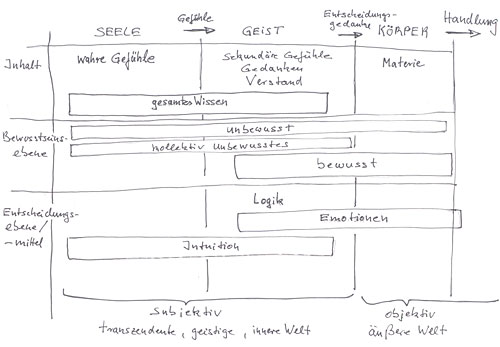 SEELE Gefühle GEIST Entscheidungs-
gedanke KÖRPER Handlung
Inhalt wahre Gefühle Sekundäre Gefühle Materie
Gedanken
Verstand
gesamtes Wissen
Bewusstseins-
ebene
unbewusst
kollektiv unbewusstes
bewusst
Logik
Entscheidungs-
ebene/
-mittel
Emotionen
Intuition
subjektiv objektiv
transzendente, geistige, innere Welt äußere Welt